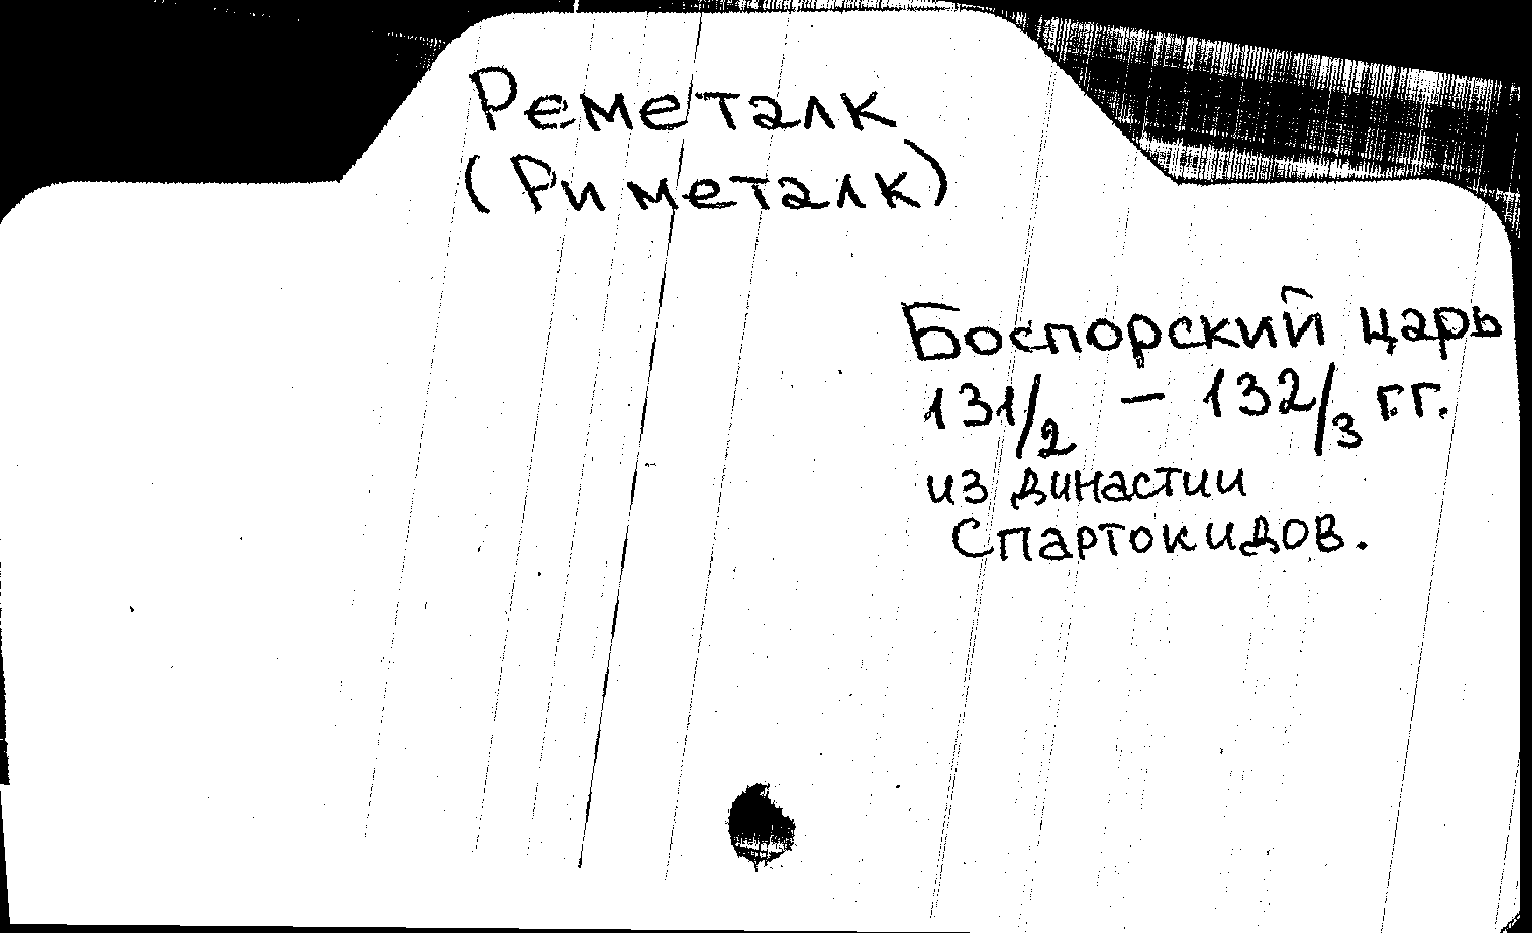 Реметалк
(Риметалк)
Боспорский царь
131/2 – 132/3 г.г.
из династии
Спартокидов.